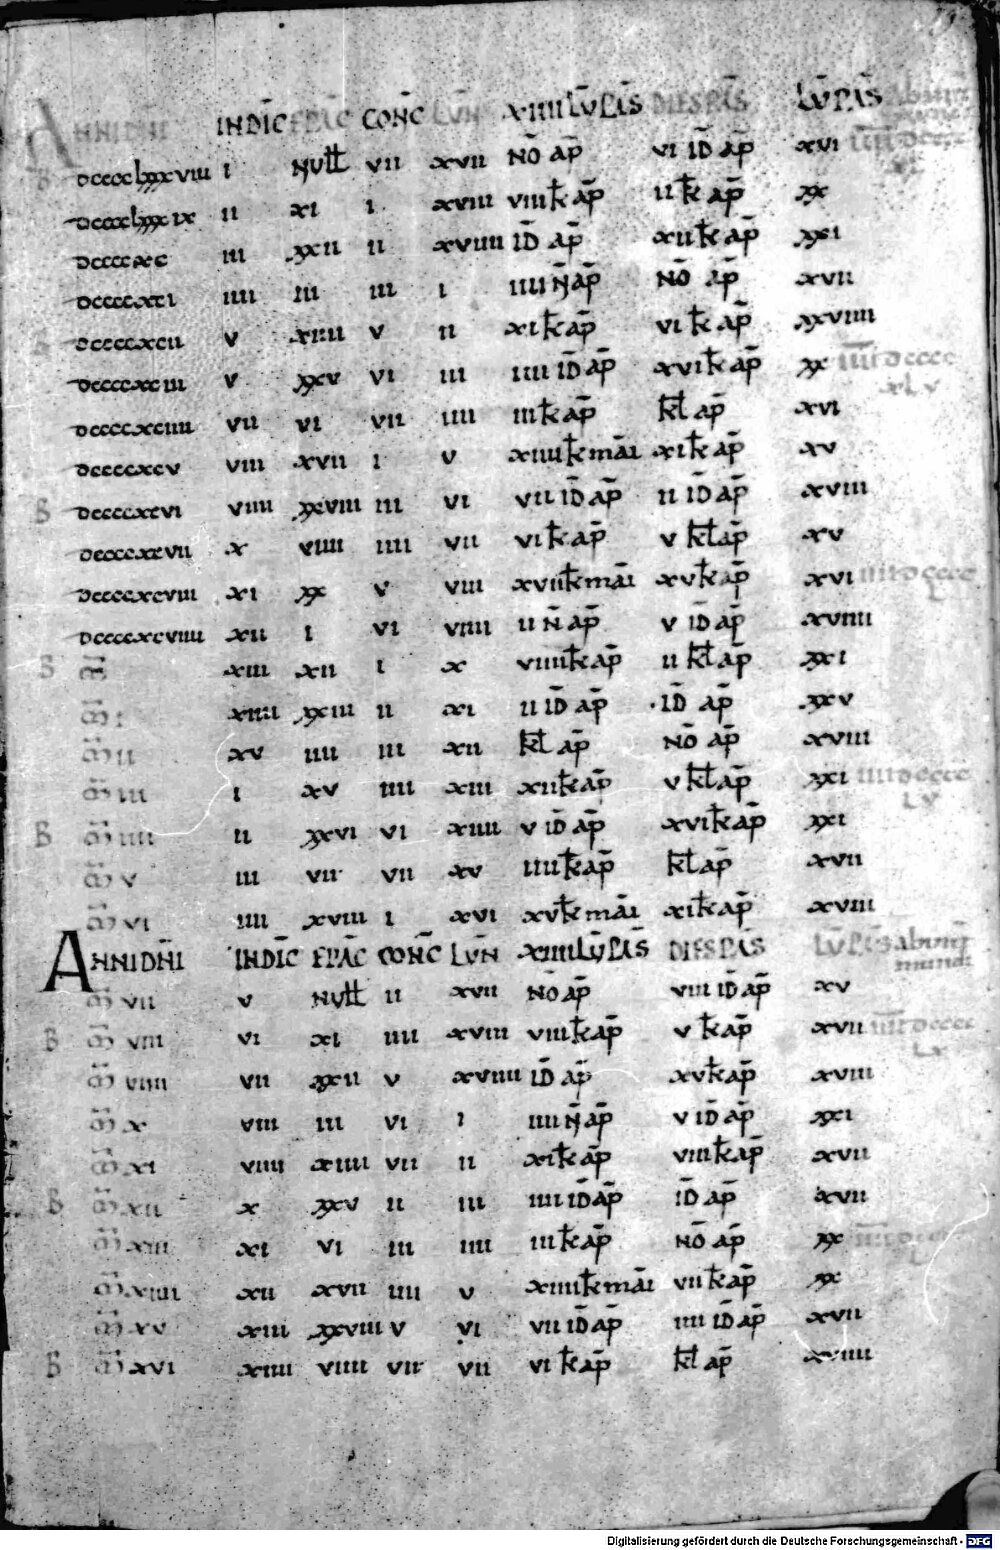 ANNIDNI INDIC EPAC CONC LVN XIIII LV PAS DIES PAS LV PAS
B dccccLxxxviii i Null vii xvii No ap vi Id ap xvi
dccccLxxxix ii xi i xviii viii k ap ii k ap xx
dccccxc iii xxii ii xviiii Id ap xii k ap xxi
dccccxci iiii iii iii i iiii N ap No ap xvii
dccccxcii v xiiii v ii xi k ap vi k ap xxviiii
dccccxciii v xxv vi iii iiii Id ap xvi k ap xx iiii dcccc
xLv
dccccxciiii vii vi vii iiii iii k ap kl ap xvi
dccccxcv viii xvii i v xiiii k mai xi k ap xv
B dccccxcvi viiii xxviii iii vi vii Id ap ii Id ap xviii
dccccxcvii x viiii iiii vii vi k ap v kl ap xv
dccccxcviii xi xx v viii xvii k mai xv k ap xvi iiii dcccc
L
dccccxcviiii xii i vi viiii ii N ap v Id ap xviiii
B m xiii xii i x viiii k ap ii kl ap xxi
m i xiiii xxiii ii xi ii Id ap Id ap xxv
m ii xv iiii iii xii kl ap No ap xviii
m iii i xv iiii xiii xii k ap v kl ap xxi iiii dcccc
Lv
B m iiii ii xxvi vi xiiii v Id ap xvi k ap xxi
m v iii vii vii xv iiii k ap kl ap xvii
m vi iiii xviii i xvi xv k mai xi k ap xviii
ANNIDNI INDIC EPAC CONC LVN XIIII LV PAS DIES PAS LV PAS ab initi
mundi
m vii v Null ii xvii No ap viii Id ap xv
B m viii vi xi iiii xviii viii k ap v k ap xvii iiii dcccc
Lx
m viiii vii xxii v xviiii Id ap xv k ap xviii
m x viii iii vi i iiii N ap v Id ap xxi
m xi viiii xiiii vii ii xi k ap viii k ap xvii
B m xii x xxv ii iii iiii Id ap Id ap xvii
m xiii xi vi iii iiii iii k ap No ap xx
m xiiii xii xvii iiii v xiiii k mai vii k ap xx
m xv xiii xxviii v vi vii Id ap iiii Id ap xvii
B m xvi xiiii viiii vii vii vi k ap kl ap xviiii
Digitalisierung gefördert durch die Deutsche Forschungsgemeinschaft - DFG